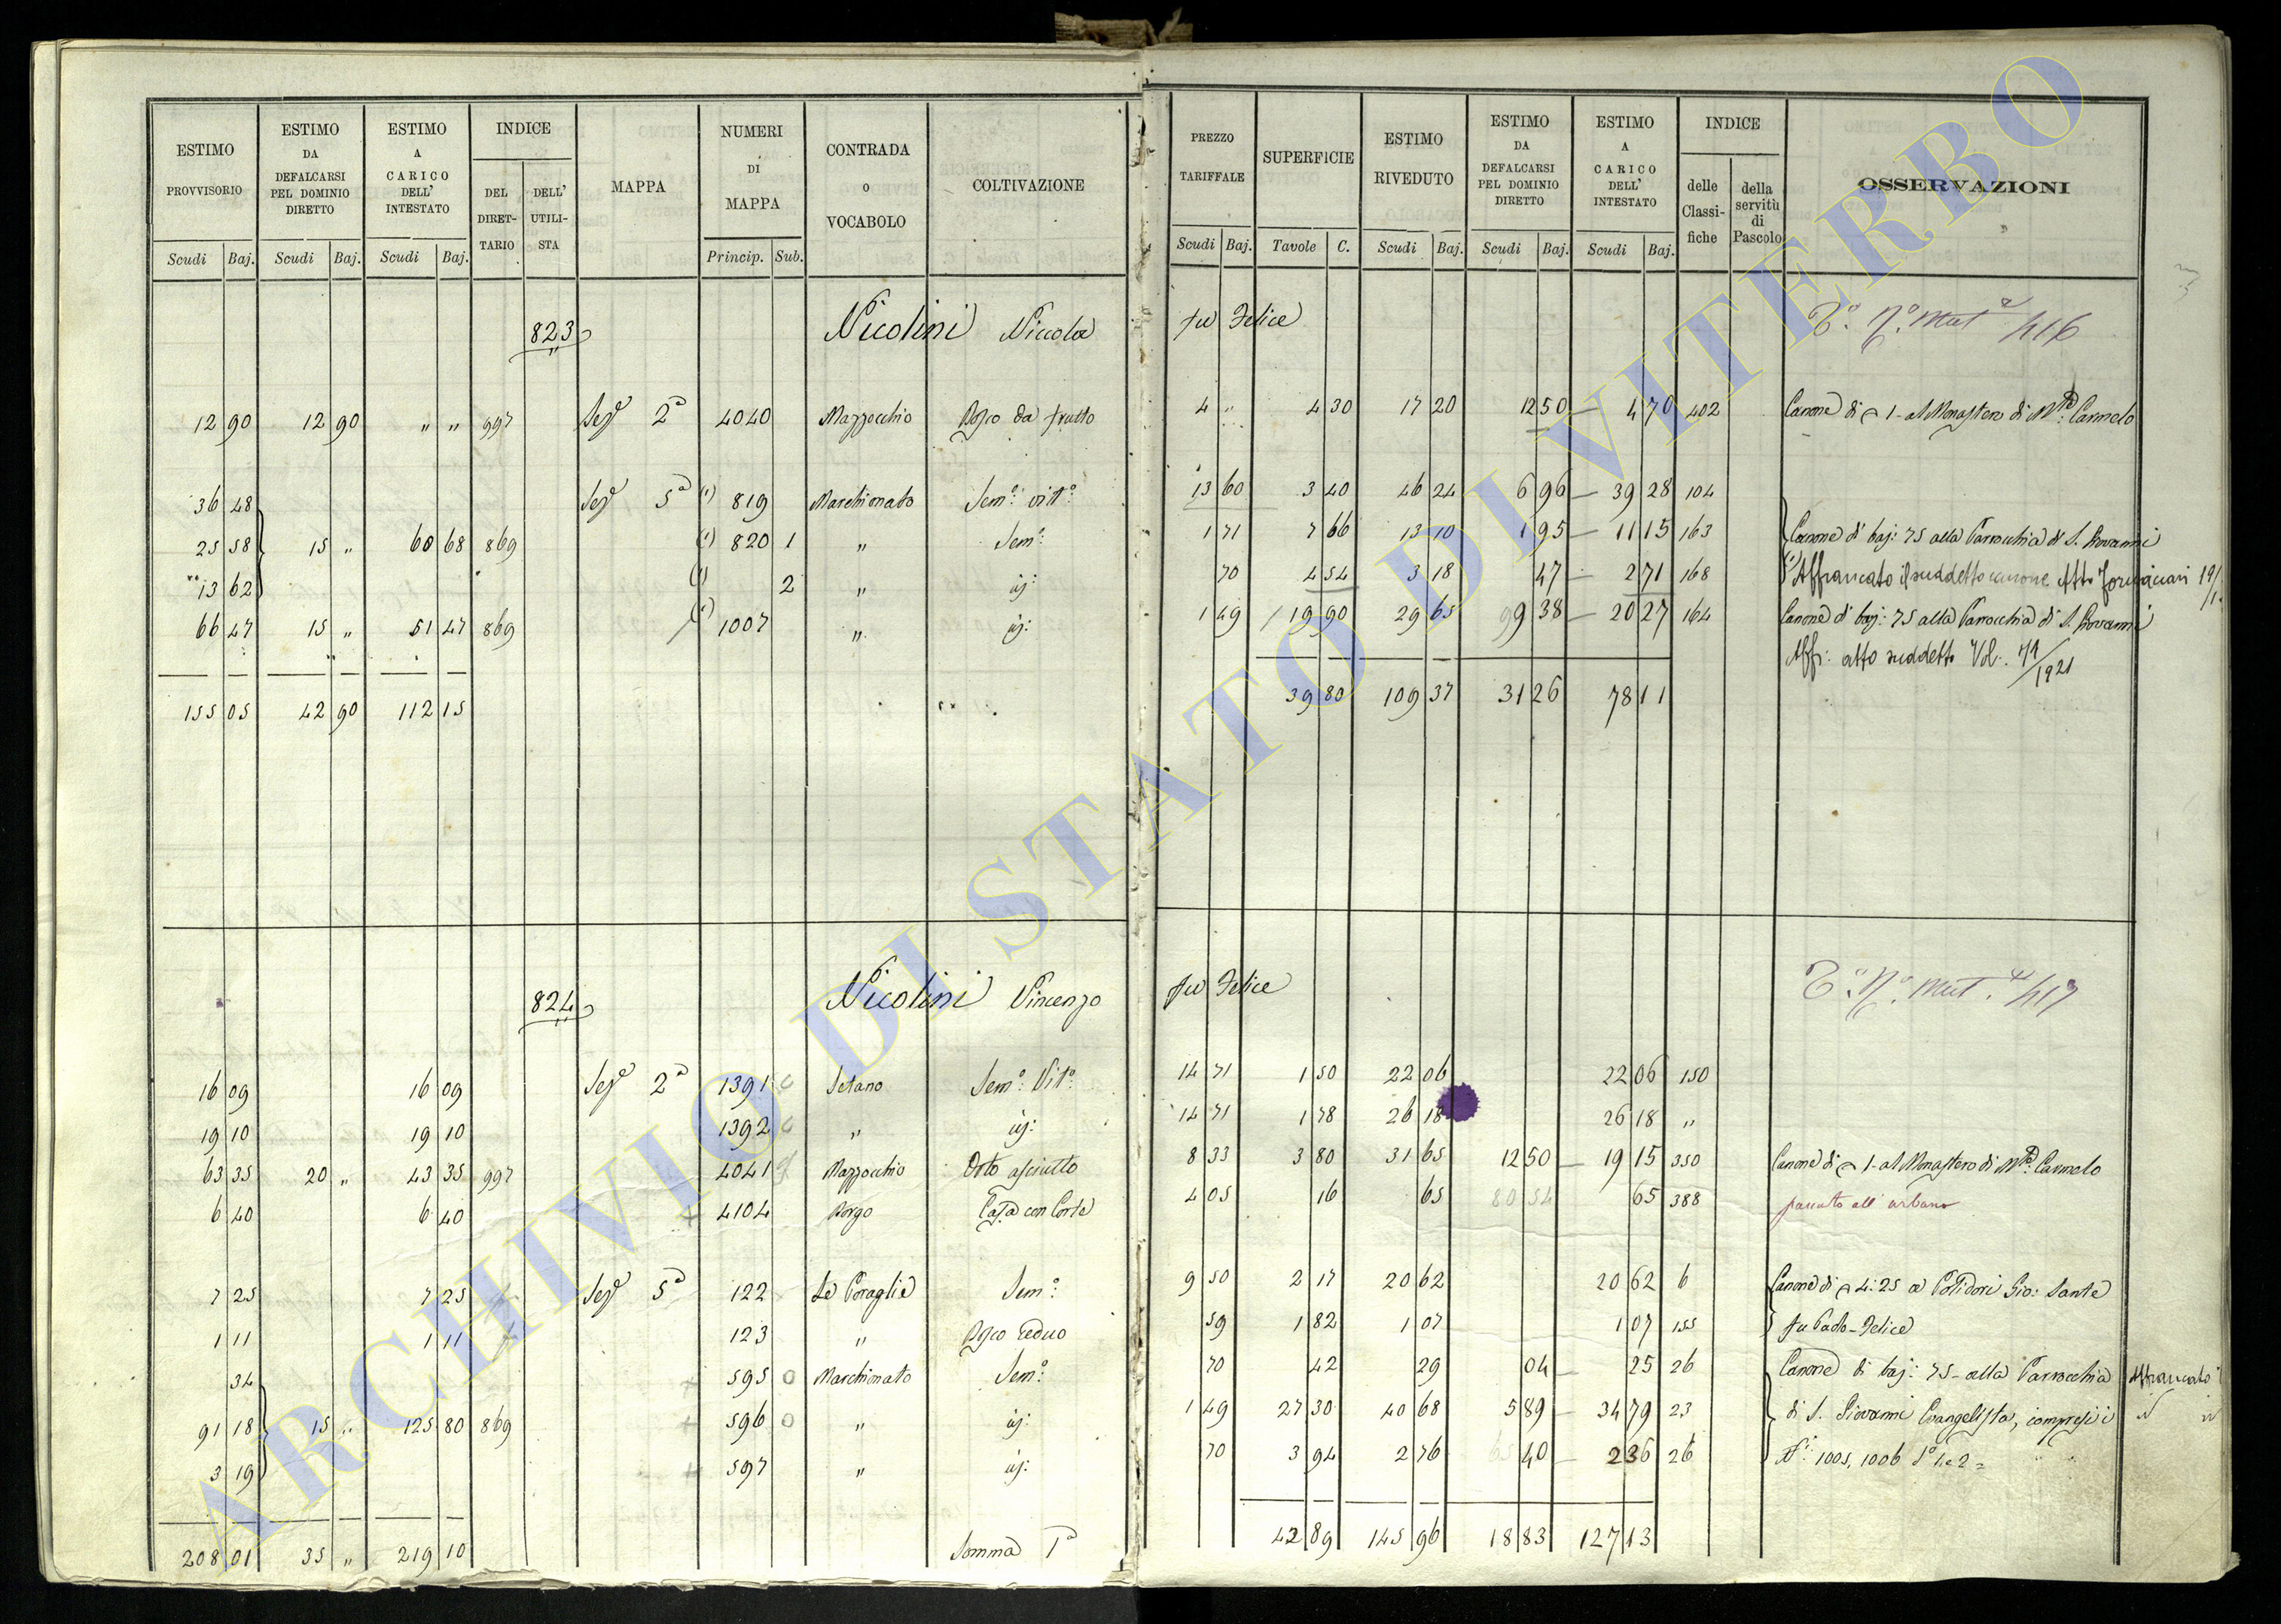 ESTIMO PROVVISORIO Scudi Baj.
ESTIMO DA DEFALCARSI PEL DOMINIO DIRETTO Scudi Baj.
ESTIMO A CARICO DELL' INTESTATO Scudi Baj.
INDICE DEL DIRET-TARIO DELL' UTILI-STA
MAPPA
NUMERI DI MAPPA Princip. Sub.
CONTRADA o VOCABOLO
COLTIVAZIONE
PREZZO TARIFFALE Scudi Baj.
SUPERFICIE Tavole C.
ESTIMO RIVEDUTO Scudi Baj.
ESTIMO DA DEFALCARSI PEL DOMINIO DIRETTO Scudi Baj.
ESTIMO A CARICO DELL' INTESTATO Scudi Baj.
INDICE delle Classi-fiche della servitù di Pascolo
OSSERVAZIONI
823 Nicolini Niccola fu Felice Tº. Nº. Mut.ª 416
12 90 12 90 " " 997 Sezº 2ª 4040 Mazzocchio Bosco da frutto 4 " 4 30 17 20 12 50 4 70 402 Canone di 1- al Monastero di Mª Carmelo
36 48 Sezº 5ª (1) 819 Marchionato Semº: vitº: 13 60 3 40 46 24 6 96 39 28 104
25 58 15 " 60 68 869 (1) 820 1 " Semº: 1 71 7 66 13 10 1 95 11 15 163 Canone di baj: 75 alla Parrocchia di S. Giovanni
13 62 (1) 2 " id: 70 4 54 3 18 47 2 71 168 (1) Affrancato il suddetto canone Atto
66 47 15 " 51 47 869 (1) 1007 " id: 1 49 19 90 29 65 9 38 20 27 164 Canone di baj: 75 alla Parrocchia di S. Giovanni
Aff: atto suddetto Vol. 71/1921
155 05 42 90 112 15 39 80 109 37 31 26 78 11
824 Nicolini Vincenzo fu Felice Tº. Nº. Mut.ª 417
16 09 16 09 Sezº 2ª 1391 Setano Semº: Vitº: 14 71 1 50 22 06 22 06 150
19 10 19 10 1392 " id: 14 71 1 78 26 18 26 18 "
63 35 20 " 43 35 997 4041 Mazzocchio Orto asciutto 8 33 3 80 31 65 12 50 19 15 350 Canone di 1- al Monastero di Mª Carmelo
6 40 6 40 4104 Borgo Casa con Corte 4 05 16 65 65 388 passato all' urbano
7 25 7 25 Sezº 5ª 122 Le Poraglie Semº: 9 50 2 17 20 62 20 62 6 Canone di 4:25 a Polidori Gio: Sante
1 11 1 11 123 " Bosco ceduo 59 1 82 1 07 1 07 155 fu Paolo-Felice
34 595 Marchionato Semº: 70 42 29 04 25 26 Canone di baj: 75- alla Parrocchia Affrancato
91 18 15 " 125 80 869 596 " id: 1 49 27 30 40 68 5 89 34 79 23 di S. Giovanni Evangelista, compresi i
3 19 597 " id: 70 3 94 2 76 40 2 36 26 Nⁱ: 1005, 1006 Sº 1 e 2 =
208 01 35 " 219 10 Somma Tª 42 89 145 96 18 83 127 13
ARCHIVIO DI STATO DI VITERBO